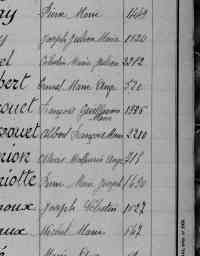 ay Pierre Marie 1449
y Joseph Julien Marie 1120
el Célestin Marie Julien 2212
bert Ernest Marie Ange 520
ouet François Guillaume Marie 1385
rouet Albert François Marie 2210
nion Mathurin Ange 215
riotte Pierre Marie Joseph 1630
noux Joseph Célestin 1027
aux Michel Marie 162